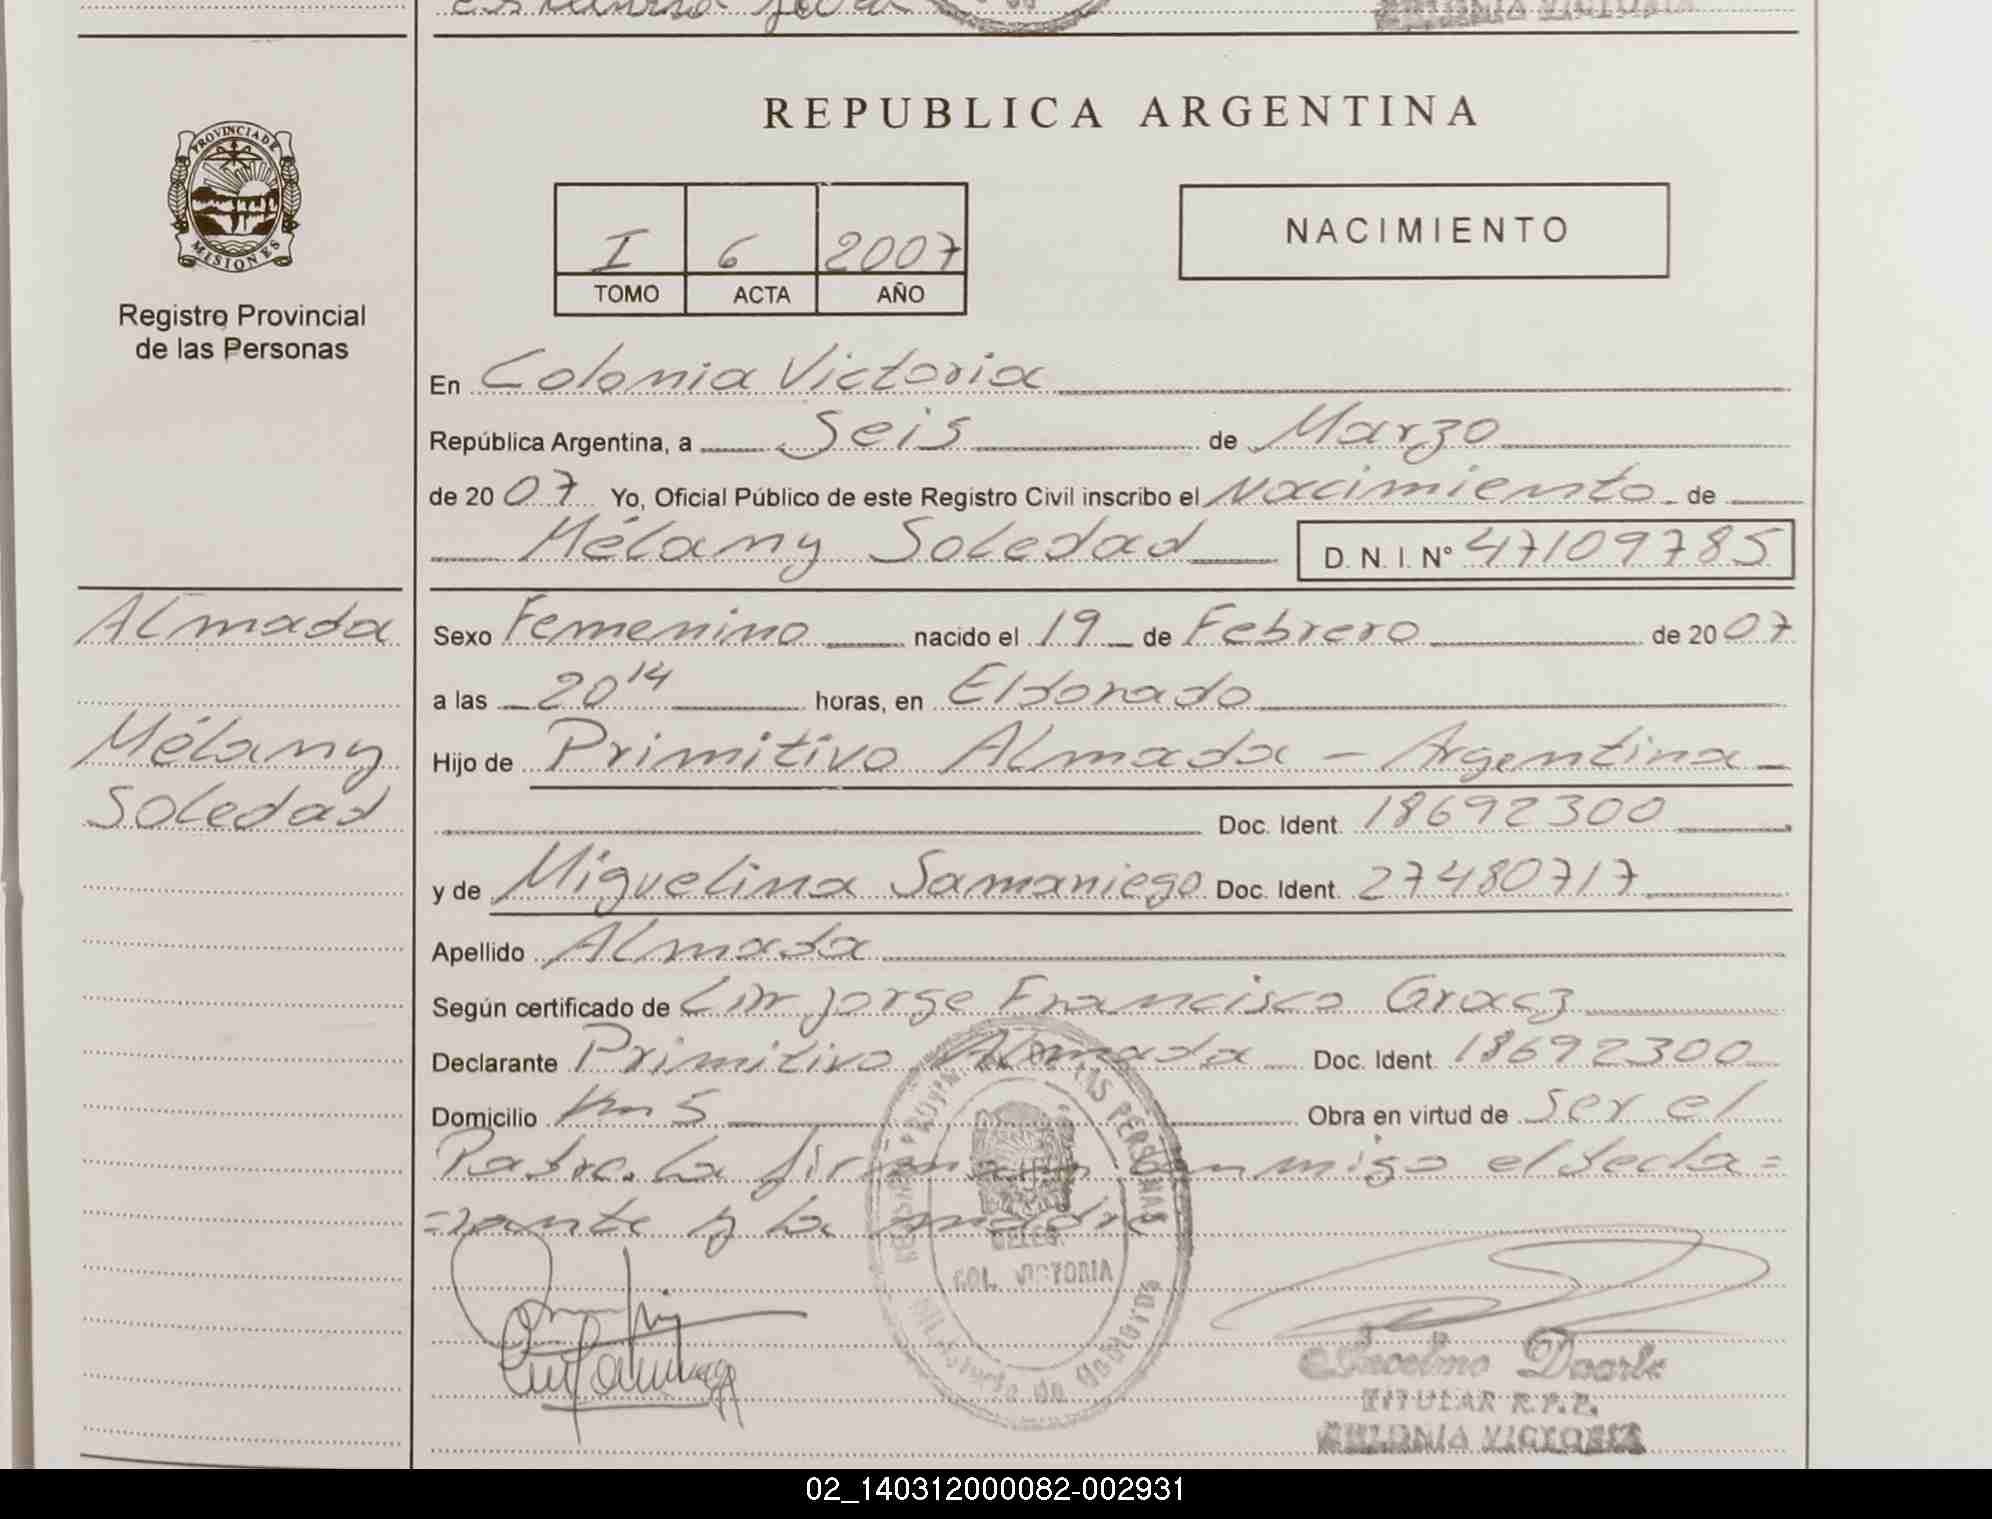 COLONIA VICTORIA
REPUBLICA ARGENTINA
PROVINCIA DE
MISIONES
Registro Provincial
de las Personas
I 6 2007
TOMO ACTA AÑO
NACIMIENTO
En Colonia Victoria
República Argentina, a Seis de Marzo
de 2007 Yo, Oficial Público de este Registro Civil inscribo el Nacimiento de
Mélany Soledad D. N. I. N° 47109785
Almada
Mélany
Soledad
Sexo Femenino nacido el 19 de Febrero de 2007
a las 20 14 horas, en Eldorado
Hijo de Primitivo Almada - Argentina
Doc. Ident. 18692300
y de Miguelina Samaniego Doc. Ident. 27480717
Apellido Almada
Según certificado de Jorge Francisco
Declarante Primitivo Almada Doc. Ident. 18692300
Domicilio Km 5 Obra en virtud de Ser el
Padre. La firman conmigo el decla=
=rante y la madre
DELEG.
COL. VICTORIA
Anselmo Duarte
TITULAR R.P.P.
COLONIA VICTORIA
02_140312000082-002931